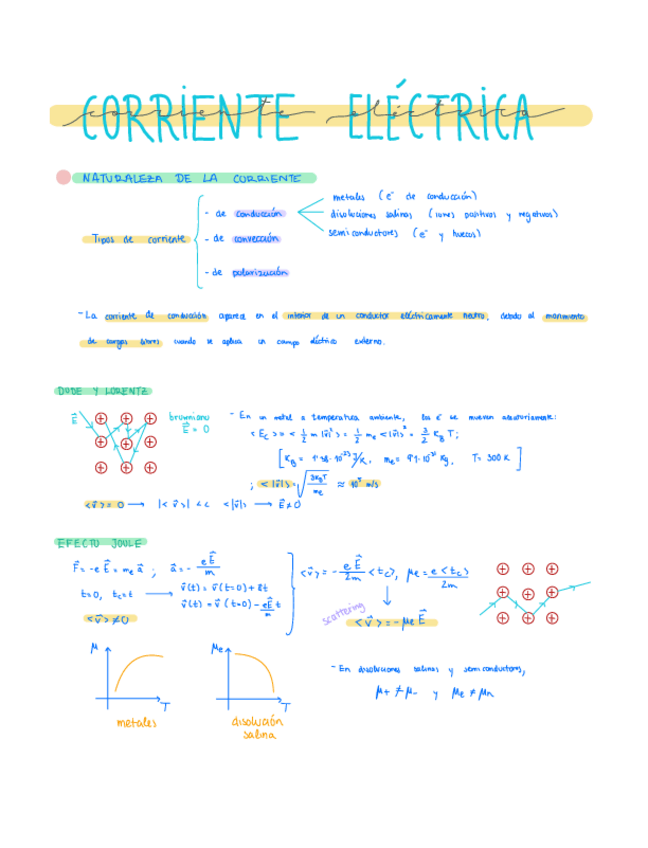 CORRIENTE ELÉCTRICA
corriente eléctrica
NATURALEZA DE LA CORRIENTE
Tipos de corriente
- de conducción
- de convección
- de polarización
metales (e⁻ de conducción)
disoluciones salinas (iones positivos y negativos)
semiconductores (e⁻ y huecos)
- La corriente de conducción aparece en el interior de un conductor eléctricamente neutro, debido al movimiento
de cargas libres cuando se aplica un campo eléctrico externo.
DUDE Y LORENTZ
browniano
= 0
- En un metal a temperatura ambiente, los e⁻ se mueven aleatoriamente:
<Ec> = <½ m |v|²> = ½ me <|v|>² = 3/2 KB T;
[KB = 1'38·10⁻²³ J/K, me = 9'1·10⁻³¹ Kg, T = 300 K]
; <|v|> = √(3KBT/me) ≈ 10⁵ m/s
<v⃗> = 0 → |<v⃗>| << <|v|> → E⃗ ≠ 0
EFECTO JOULE
F⃗ = -e E⃗ = me a⃗ ; a⃗ = - eE⃗/m
t=0, tc=t → v⃗(t) = v⃗(t=0) + at
v⃗(t) = v⃗(t=0) - eE⃗/m t
<v⃗> ≠ 0
<v⃗> = - eE⃗/2m <tc>, μe = e<tc>/2m
scattering
<v⃗> = - μe E⃗
μ
T
metales
μe
T
disolución
salina
- En disoluciones salinas y semiconductores,
μ+ ≠ μ- y μe ≠ μn